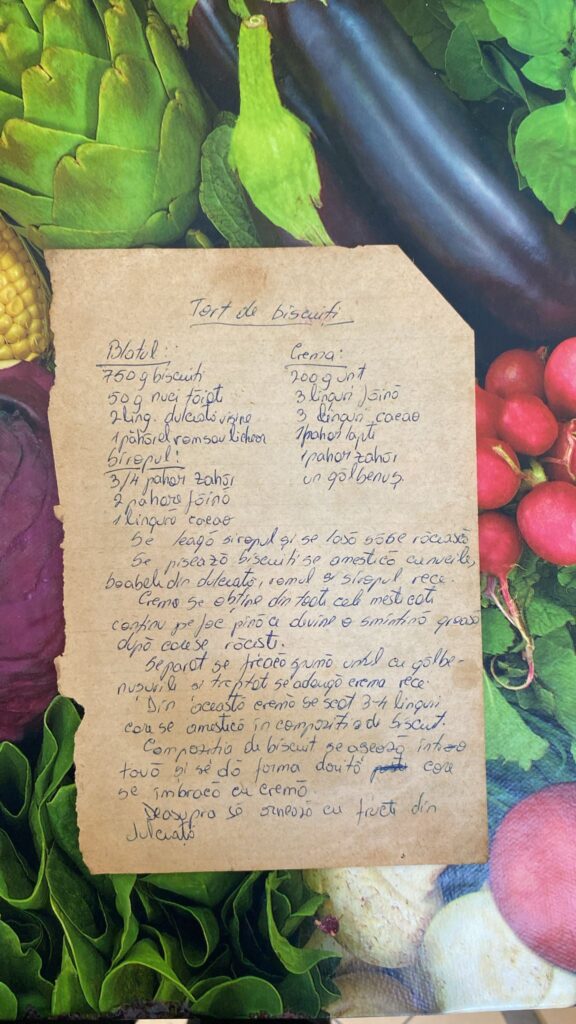 Tort de biscuiți
Blatul:
750 g biscuiti
50 g nuci tăiat
2 ling. dulceată vișine
1 păhărel rom sau lichior
Siropul:
3/4 pahar zahăr
2 pahare făină
1 lingură cacao
Crema:
200 g unt
3 linguri făină
3 linguri cacao
1 pahar lapti
1 pahar zahăr
un gălbenuș.
Se leagă siropul și se lasă să se răcească
Se pisează biscuiti se amestică cu nucile,
boabele din dulceată, romul și siropul rece.
Crema se obține din toate cele mesticat
continu pe foc pînă ce divine o smîntînă groasă
după care se răcești.
Separat se freacă spumă untul cu gălbe-
nușurile și treptat se adaugă crema rece.
Din această cremă se scot 3-4 linguri
care se amestică în compozitia de biscuit.
Compozitia de biscuit se asează într-o
tavă și se dă forma dorită care
se îmbracă cu cremă.
Deasupra să ornează cu fructe din
dulceată